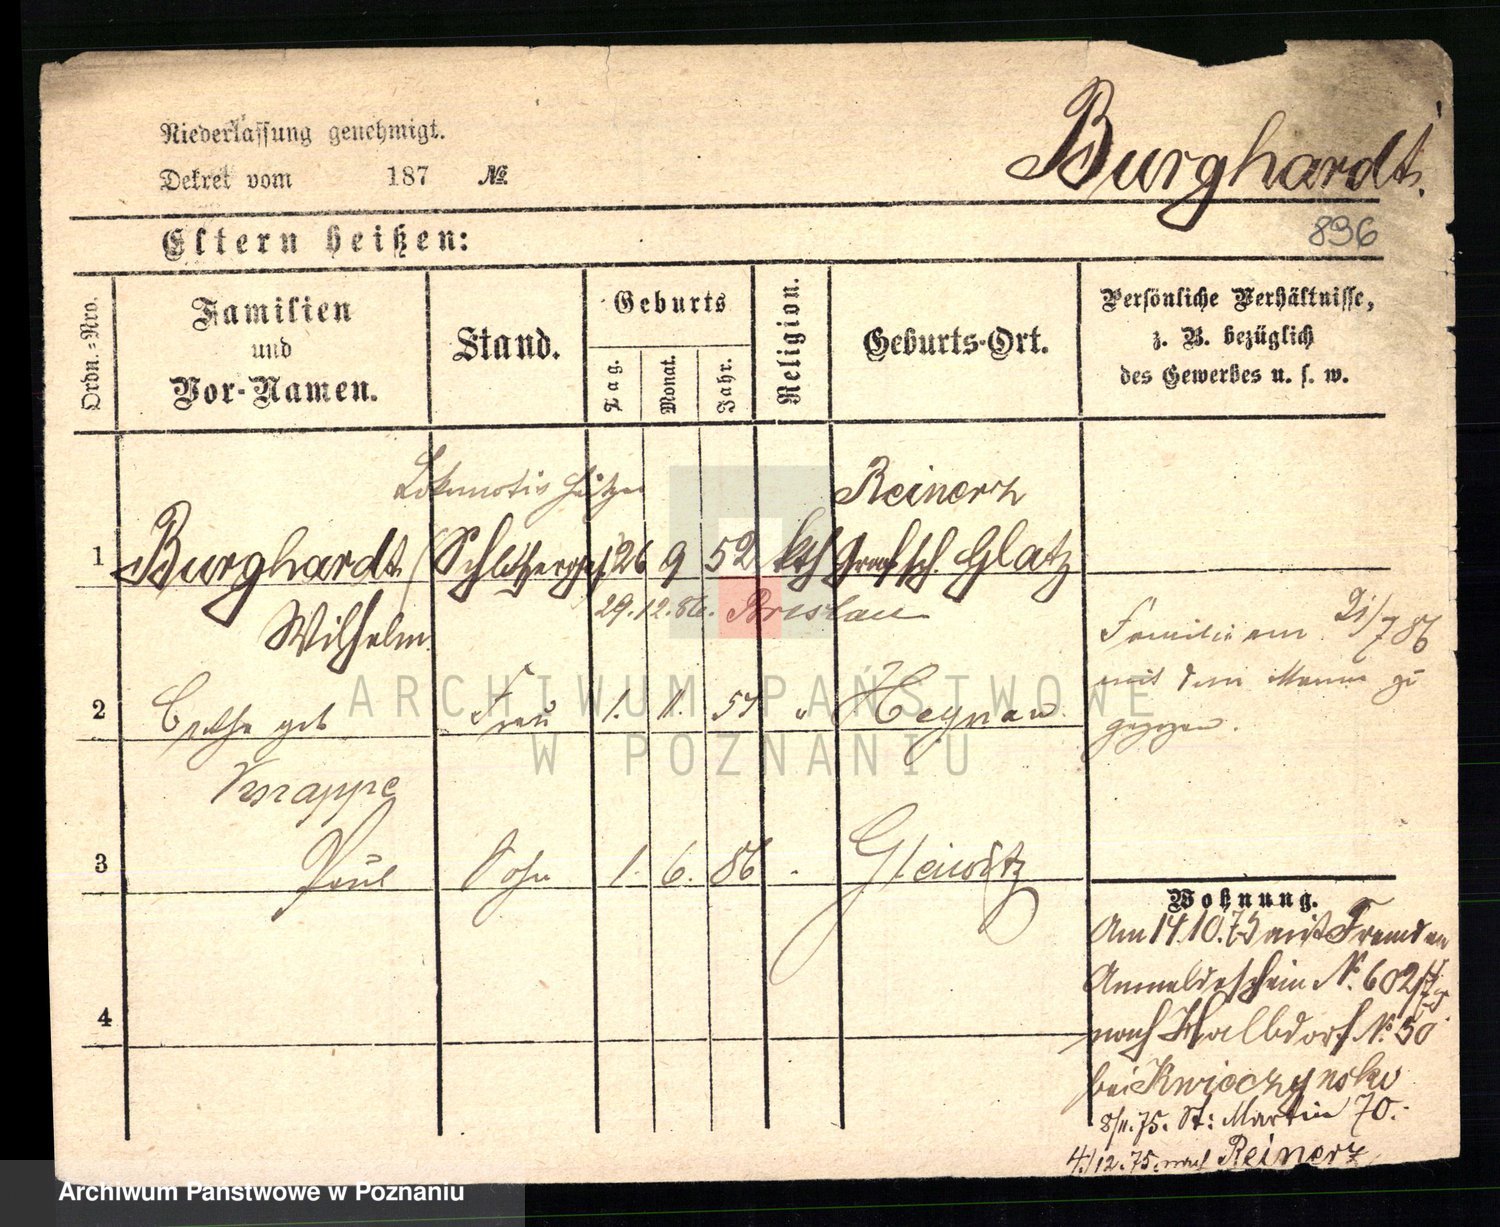 Burghardt.
Niederlassung genehmigt.
Dekret vom 187 No.
896
Eltern heißen:
Ordn.-Nro.
Familien
und
Vor-Namen.
Stand.
Geburts
Tag.
Monat.
Jahr.
Religion.
Geburts-Ort.
Persönliche Verhältnisse,
z. B. bezüglich
des Gewerbes u. s. w.
Reinerz
1 Burghardt 26 9 52 kth Grafsch. Glatz
29.12.86. Breslau
Wilhelm
Familie am 21/7 86
mit dem Manne zu
gezogen.
2 geb Frau 1. 11. "
Knappe
3 Paul Sohn 1. 6. 86 Gleiwitz
4
Wohnung.
Am 14.10.75 mit Fremden
Anmeldeschein No. 602
nach Halbdorf No. 30
bei Kwieczynski
8/11.75. St: Martin 70.
4/12.75. nach Reinerz
ARCHIWUM PAŃSTWOWE
W POZNANIU
Archiwum Państwowe w Poznaniu